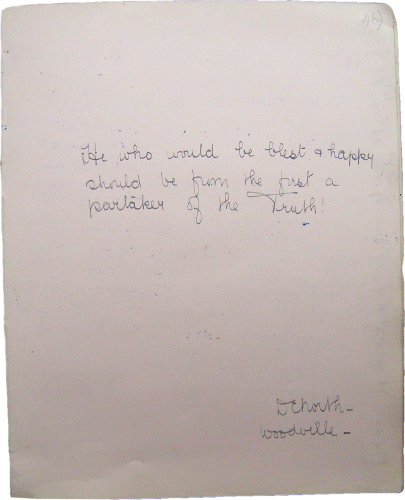 46
He who would be blest & happy
should be from the first a
partaker of the Truth!
DENorth–
Woodville–